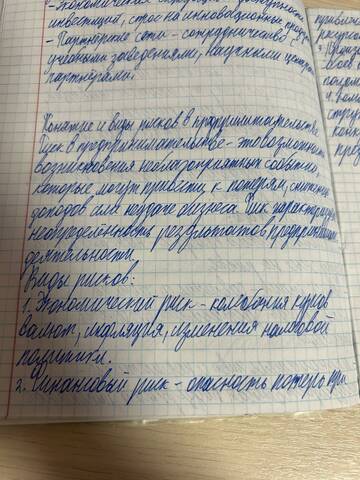 - Экономическая
инвестиций, спрос на инновационные
- Партнёрские сети - сотрудничество с
учебными заведениями, научными
партнёрами.
Понятие и виды рисков в предпринимательстве
Риск в предпринимательстве - это возможность
возникновения неблагоприятных событий,
которые могут привести к потерям, снижению
доходов или неудаче бизнеса. Риск характеризует
неопределённость результатов предпринимательской
деятельности.
Виды рисков:
1. Экономический риск - колебания курсов
валют, инфляция, изменения налоговой
политики.
2. Финансовый риск - опасность потерь при